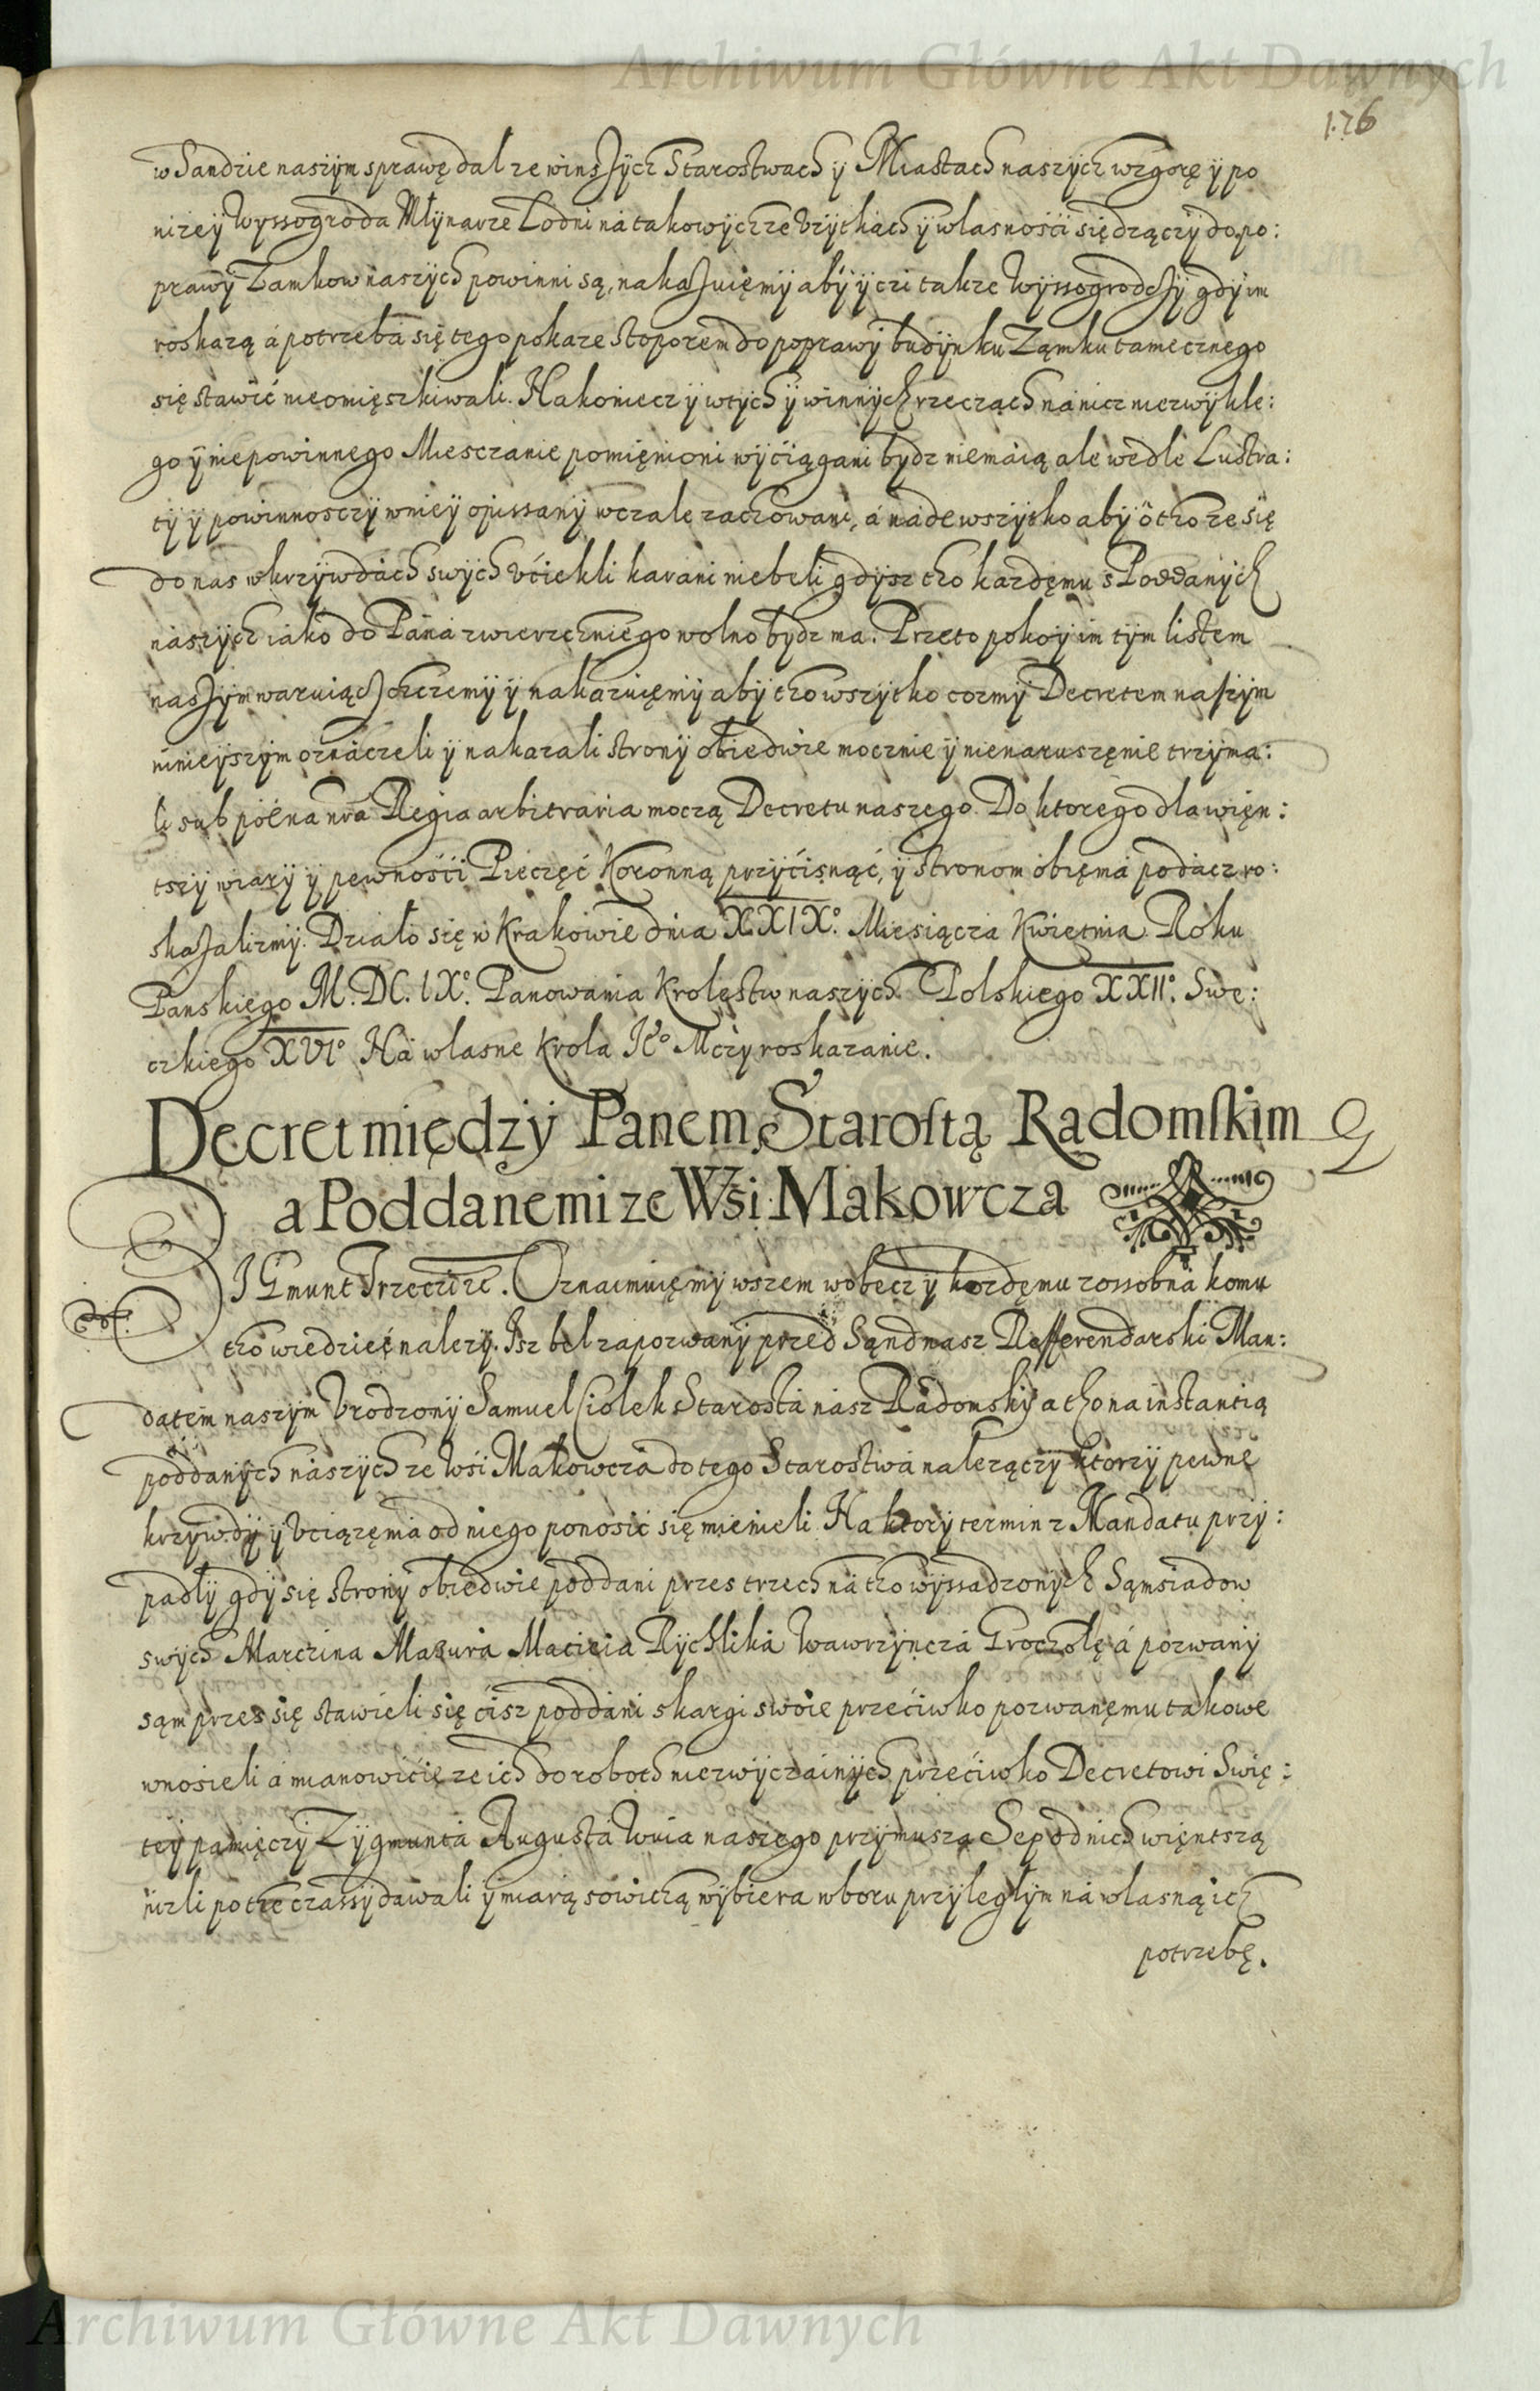 Archiwum Główne Akt Dawnych
176
w Sandzie naszym sprawę dał ze winszych Starostwach y Miastach naszych wzgorę y po
nizey Wyssogroda Młynarze Łodni na takowych ze vzytkach y własnosci się dzączy do po:
prawy Zamkow naszych powinni są, nakazuięmy aby y czi takze Wyssogrodczy gdy im
roskazą á potrzeba się tego pokaze stoporem do poprawy budynku Ząmku tamecznego
się stawić nieomięszkiwali. Nakoniecz y wtych y winnych rzeczach nánicz niezwykłe:
go y niepowinnego Miesczanie pomięnioni wyciągani bydz niemaią ale wedle Lustra:
ty y powinnosczy wniey opissany wczale zachowani, á nádewszytko aby o tho ze się
do nas wkrzywdach swych vciekli karani niebeli gdysz tho kazdęmu s Poddanych
naszych iako do Pana zwierzchniego wolno bydz ma. Przeto pokoy im tym listem
naszym waruiącz chczemy y nakazuięmy aby tho wszytko cozmy Decretem naszym
ninieyszym oznaczeli y nakazali strony obiedwie mocznie y nienaruszęnie trzyma:
li sub poena nrá Regia arbitraria moczą Decretu naszego. Do ktorego dla więn:
tszy wiary y pewnosci Pieczęć Koronną przycisnąć, y stronom obięma podacz ro:
skazalizmy. Działo się w Krakowie dnia XXIXº. Miesiącza Kwietnia Roku
Panskiego M. DC. IXº. Panowania Krolęstw naszych Polskiego XXIIº. Swe:
czkiego XVIº Ná własne Krola Jº Mczy roskazanie.
Decret między Panem Starostą Radomskim
a Poddanemi ze Wsi Makowcza
ZIGmunt Trzeci etc. Oznaimuięmy wszem wobecz y kozdęmu zossobna komu
tho wiedzieć nalezy. Isz beł zapozwany przed Sąnd nasz Refferendarski Man:
datem naszym Vrodzony Samuel Ciołek Starosta nasz Radomsky a tho na instantią
poddanych naszych ze Wsi Makowcza do tego Starostwa nalezączy ktorzy pewne
krzywdy y vciązęnia od niego ponosić się mienieli. Na ktory termin z Mandatu przy:
padły gdy się strony obiedwie poddani przes trzech ná tho wyssadzonych Sąmsiadow
swych Marczina Mazura Macieia Rychlika Wawrzyncza Groczolę á pozwany
sąm przes się stawieli się cisz poddani skargi swoie przeciwko pozwanęmu takowe
wnosieli á mianowicie ze ich do roboth niezwyczainych przeciwko Decretowi Swię:
tey pamięczy Zygmunta Augusta Wuia naszego przymusza Sep od nich więntszą
nizli po the czassy dawali y miarą sowiczą wybiera w boru przyległym ná własną ich
potrzebę.
Archiwum Główne Akt Dawnych